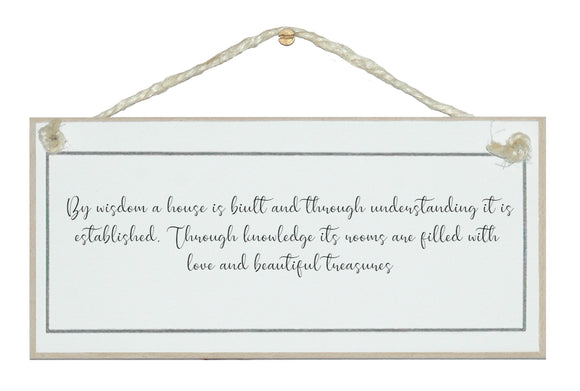 By wisdom a house is biult and through understanding it is
established. Through knowledge its rooms are filled with
love and beautiful treasures